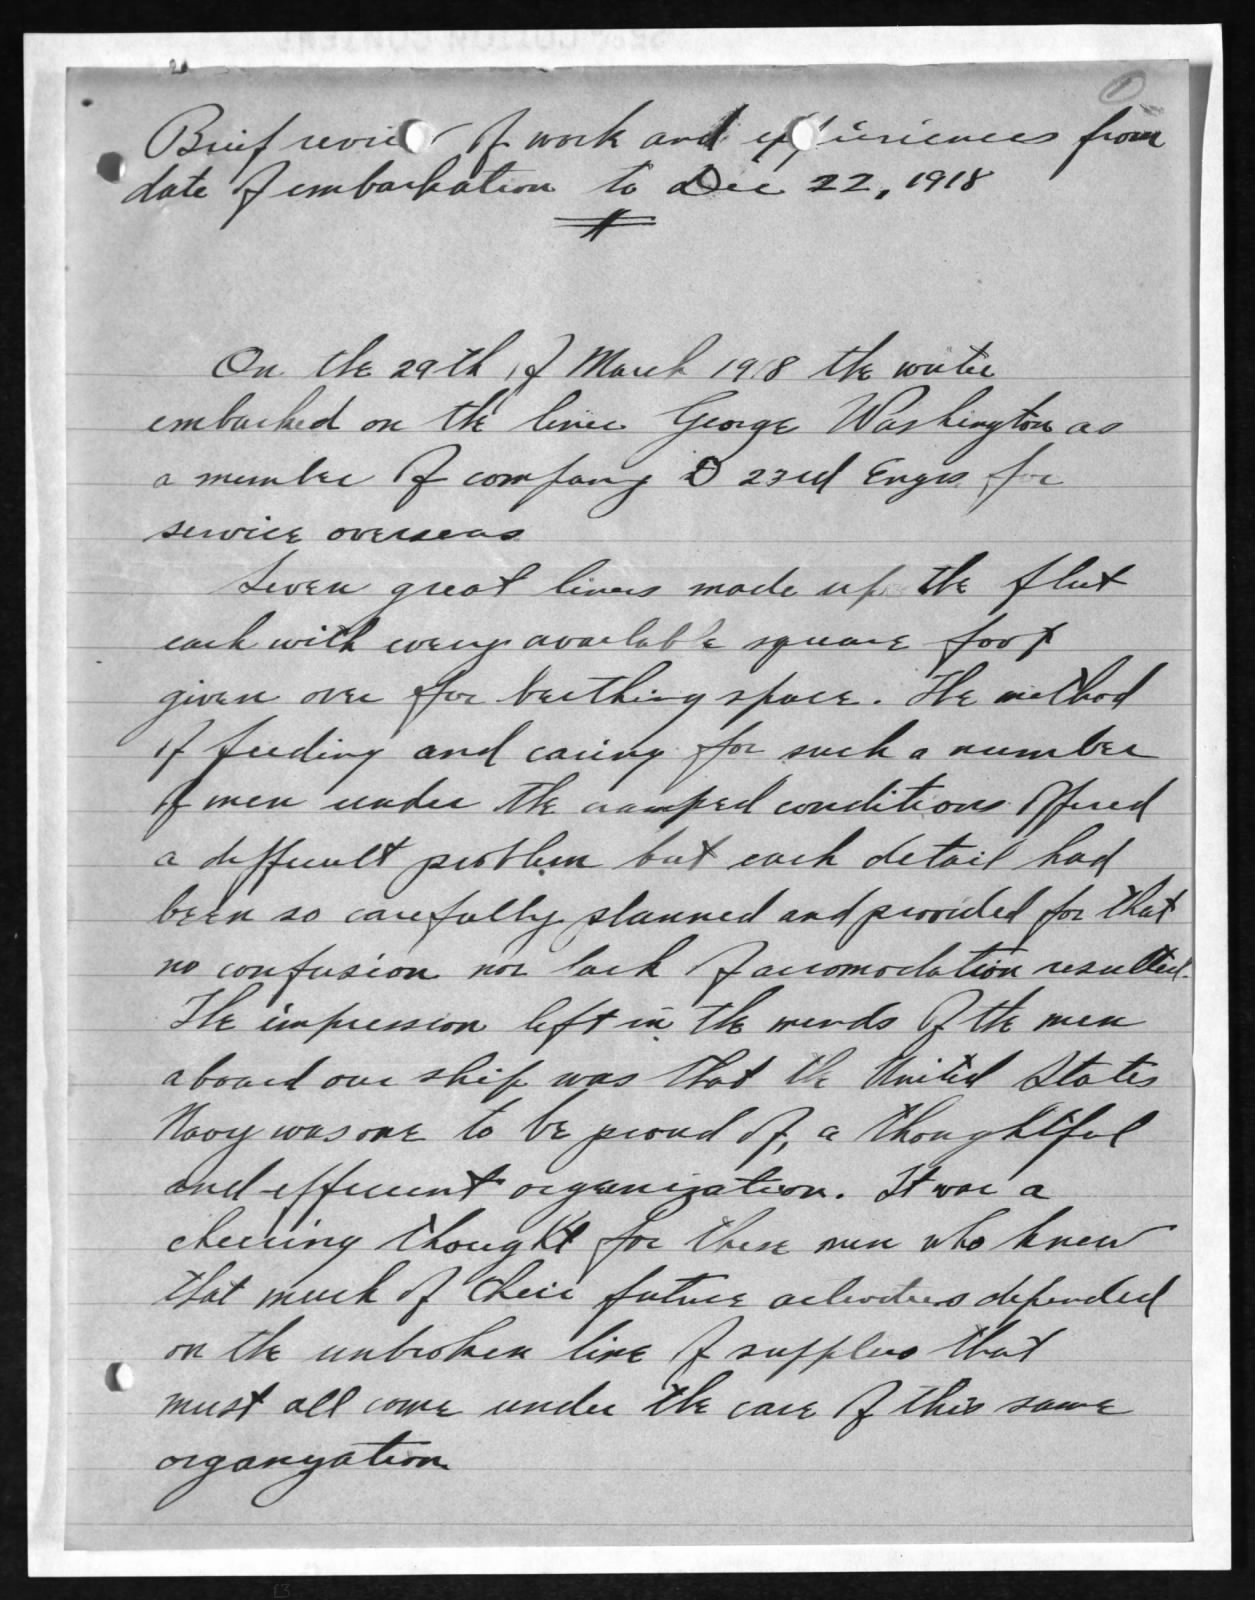 1
Brief review of work and experiences from
date of embarkation to Dec 22, 1918
On the 29th of March 1918 the writer
embarked on the liner George Washington as
a member of company D 23rd Engrs for
service overseas
Seven great liners made up the fleet
each with every available square foot
given over for berthing space. The method
of feeding and caring for such a number
of men under the cramped conditions offered
a difficult problem but each detail had
been so carefully planned and provided for that
no confusion nor lack of accomodation resulted.
The impression left in the minds of the men
aboard our ship was that the United States
Navy was one to be proud of, a thoughtful
and efficient organization. It was a
cheering thought for these men who knew
that much of their future activities depended
on the unbroken line of supplies that
must all come under the care of this same
organization